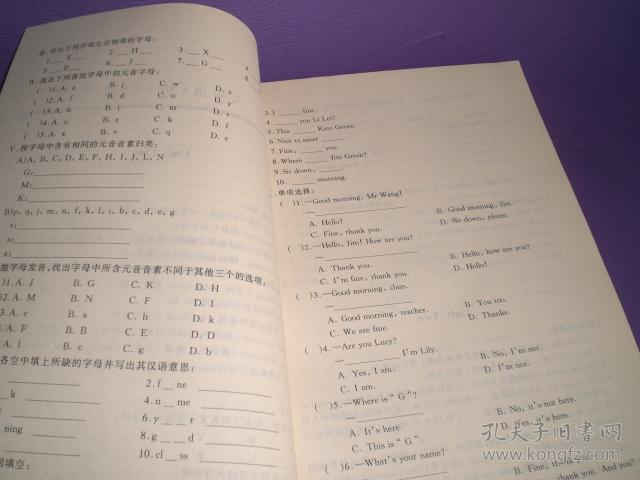 写出下列字母左右相邻的字母:
1.___E___ 2.___H___ 3.___X___
5.___B___ 6.___J___ 7.___G___
找出下列各组字母中的元音字母:
( )1. A. a B. j C. w D. s
( )2. A. f B. d C. u D. y
( )3. A. b B. i C. m D. r
( )4. A. o B. z C. k D. f
( )5. A. x B. v C. q D. e
V. 按字母中含有相同的元音音素归类:
A) A, B, C, D, E, F, H, I, J, L, N
G:
M:
K:
B) p, q, j, m, n, f, k, l, i, b, c, d, e, g
t:
s:
a:
据字母发音,找出字母中所含元音音素不同于其他三个的选项:
)1. A. J B. G C. K D. H
)2. A. M B. N C. F D. I
)3. A. c B. a C. h D. k
A. F B. B C. E D. D
A. l B. c C. g D. b
各空中填上所缺的字母并写出其汉语意思:
k 2. f__ne
4. n__me
6. y____r
ning 8. g____d
10. cl__ss
填空:
3. I ______ fine.
4. ______ you Li Lei?
5. This ______ Kate Green.
6. Nice to meet ______.
7. Fine, ______ you.
8. Where ______ Jim Green?
9. Sit down, ______.
10. ______ morning.
单项选择:
( )1. —Good morning, Mr Wang!
—
A. Hello! B. Good morning, Jim.
C. Fine, thank you. D. Sit down, please.
( )2. —Hello, Jim! How are you?
—
A. Thank you. B. Hello, how are you?
C. I'm fine, thank you. D. Hello!
( )3. —Good morning, class.
—
A. Good morning, teacher. B. You too.
C. We are fine. D. Thanks.
( )4. —Are you Lucy?
—______ I'm Lily.
A. Yes, I am. B. No, I'm not.
C. I am. D. I'm not.
( )5. —Where is "G"?
—
A. It's here. B. No, it's not here.
C. This is "G". D. Yes, it's here.
( )6. —What's your name?
B. Fine, thank you. And you?
孔夫子旧书网
www.kongfz.com